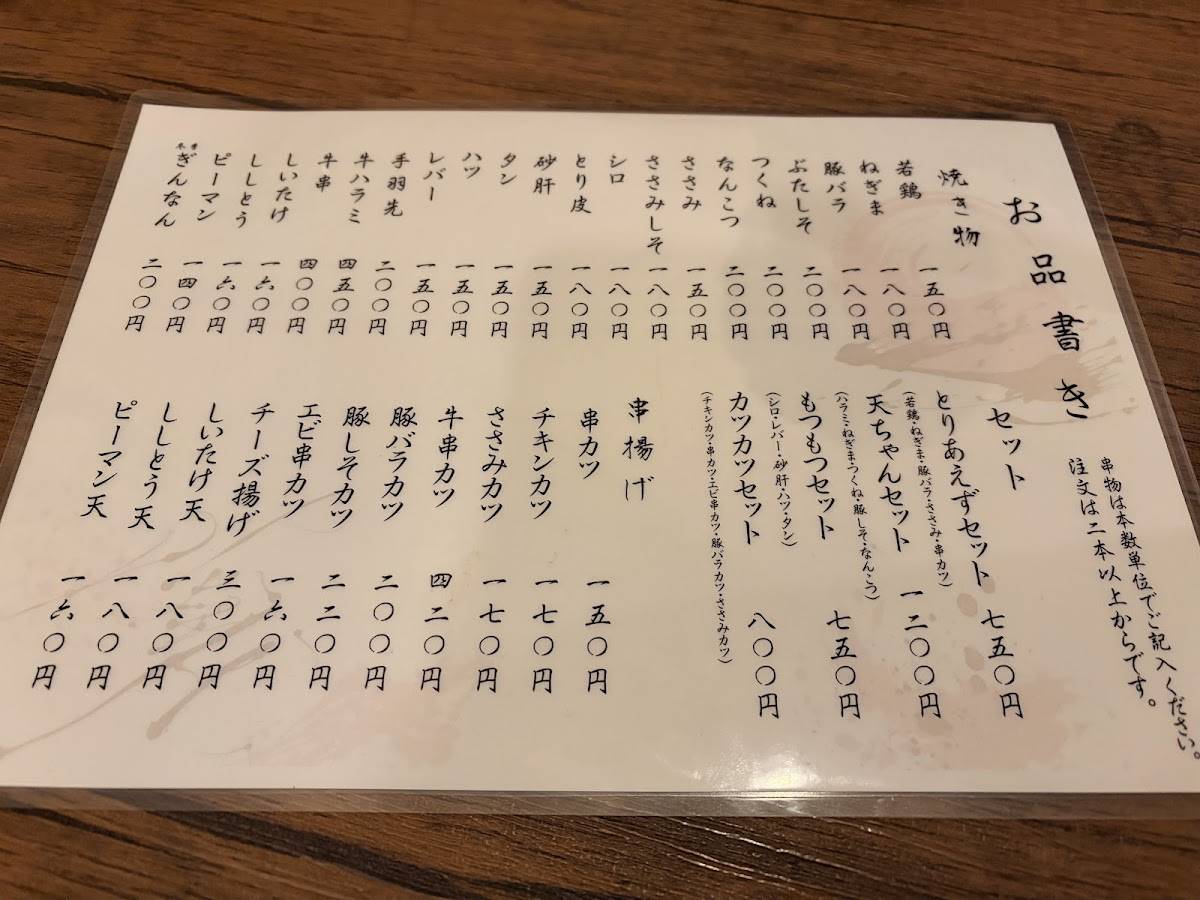 お品書き
串物は本数単位でご記入ください。
注文は二本以上からです。
焼き物
若鶏 一五〇円
ねぎま 一八〇円
豚バラ 一八〇円
ぶたしそ 二〇〇円
つくね 二〇〇円
なんこつ 二〇〇円
ささみ 一五〇円
ささみしそ 一八〇円
シロ 一八〇円
とり皮 一八〇円
砂肝 一五〇円
タン 一五〇円
ハツ 一五〇円
レバー 一五〇円
手羽先 二〇〇円
牛ハラミ 四五〇円
牛串 四〇〇円
しいたけ 一六〇円
ししとう 一六〇円
ピーマン 一四〇円
ぎんなん 二〇〇円
セット
とりあえずセット 七五〇円
(若鶏・ねぎま・豚バラ・ささみ・串カツ)
天ちゃんセット 一二〇〇円
(ハラミ・ねぎま・つくね・豚しそ・なんこう)
もつもつセット 七五〇円
(シロ・レバー・砂肝・ハツ・タン)
カツカツセット 八〇〇円
(チキンカツ・串カツ・エビ串カツ・豚バラカツ・ささみカツ)
串揚げ
串カツ 一五〇円
チキンカツ 一七〇円
ささみカツ 一七〇円
牛串カツ 四二〇円
豚バラカツ 二〇〇円
豚しそカツ 二二〇円
エビ串カツ 一六〇円
チーズ揚げ 三〇〇円
しいたけ天 一八〇円
ししとう天 一八〇円
ピーマン天 一六〇円